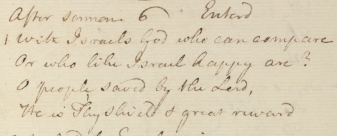 After sermon 6 Enterd
1 With Israels God who can compare
Or who like Israel happy are?
O people saved by the Lord,
He is Thy shield & great reward